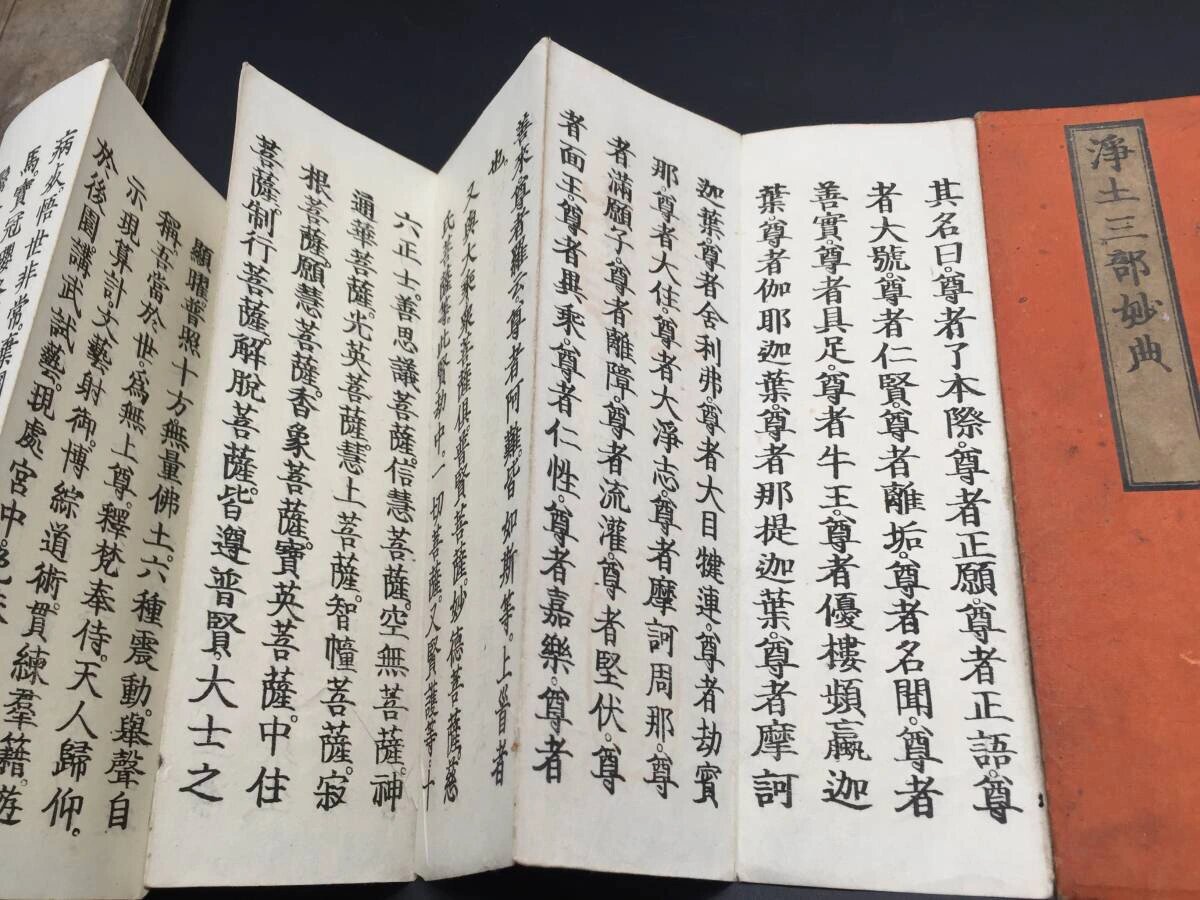 淨土三部妙典
其名曰。尊者了本際。尊者正願。尊者正語。尊
者大號。尊者仁賢。尊者離垢。尊者名聞。尊者
善實。尊者具足。尊者牛王。尊者優樓頻蠃迦
葉。尊者伽耶迦葉。尊者那提迦葉。尊者摩訶
迦葉。尊者舍利弗。尊者大目犍連。尊者劫賓
那。尊者大住。尊者大淨志。尊者摩訶周那。尊
者滿願子。尊者離障。尊者流灌。尊者堅伏。尊
者面王。尊者異乘。尊者仁性。尊者嘉樂。尊者
善來。尊者羅云。尊者阿難。皆如斯等。上首者
也。
又與大乘衆菩薩俱。普賢菩薩。妙德菩薩。慈
氏菩薩等。此賢劫中。一切菩薩。又賢護等。十
六正士。善思議菩薩。信慧菩薩。空無菩薩。神
通華菩薩。光英菩薩。慧上菩薩。智幢菩薩。寂
根菩薩。願慧菩薩。香象菩薩。寶英菩薩。中住
菩薩。制行菩薩。解脫菩薩。皆遵普賢。大士之
顯曜普照十方。無量佛土。六種震動。擧聲自
稱。吾當於世。爲無上尊。釋梵奉侍。天人歸仰。
示現算計。文藝射御。博綜道術。貫練羣籍。遊
於後園。講武試藝。現處宮中。色味
病死。悟世非常。棄國
馬。寶冠瓔珞